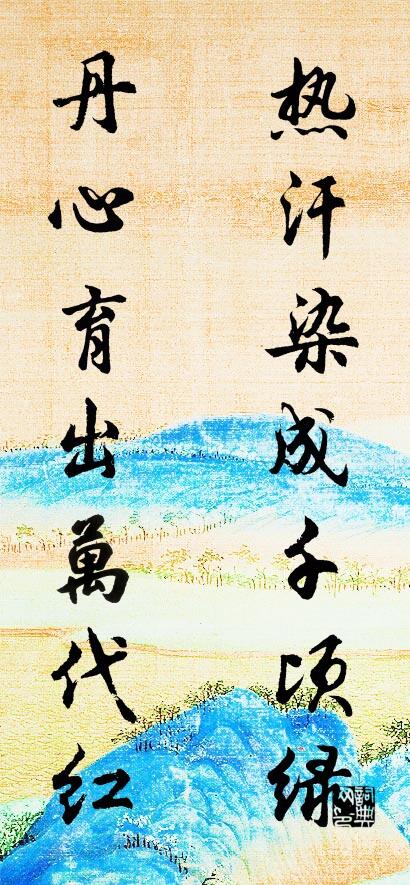 热汗染成千顷绿
丹心育出萬代红